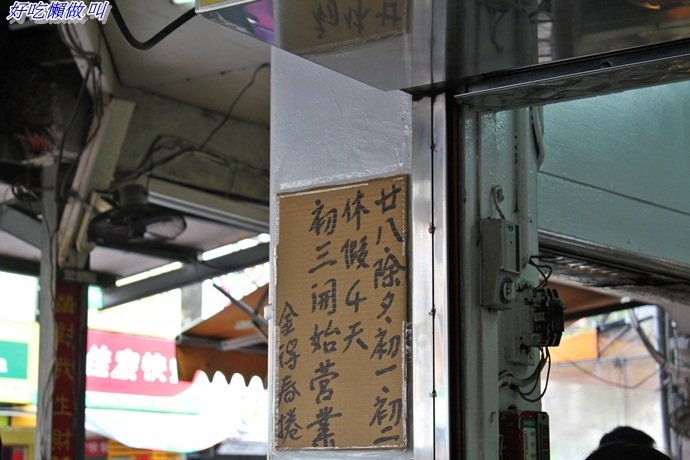 好吃懶做叫
廿八、除夕、初一、初二
休假4天
初三開始營業
金得春捲